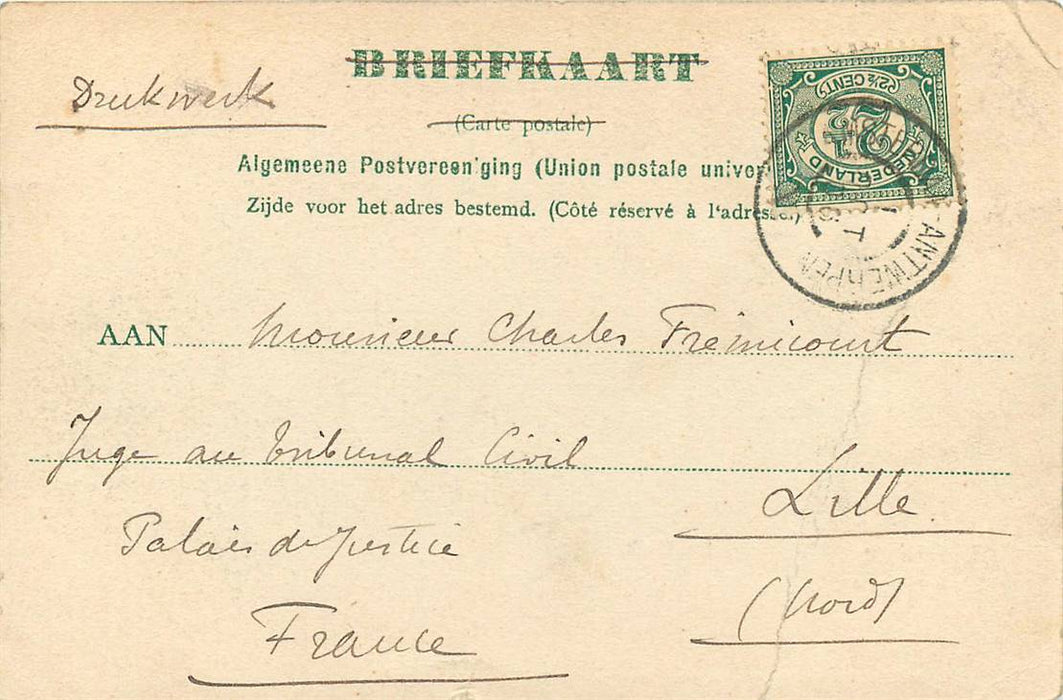 BRIEFKAART
Drukwerk
(Carte postale)
Algemeene Postvereen'ging (Union postale univer
Zijde voor het adres bestemd. (Côté réservé à l'adresse.)
2½ CENT
2½
NEDERLAND
ANTWERPEN
AAN Monsieur Charles Frémicourt
Juge au Tribunal Civil
Lille
Palais de Justice
(Nord)
France